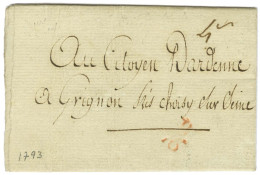 Au Citoyen Dardenne
a Grignon près choisy sur Seine
1793